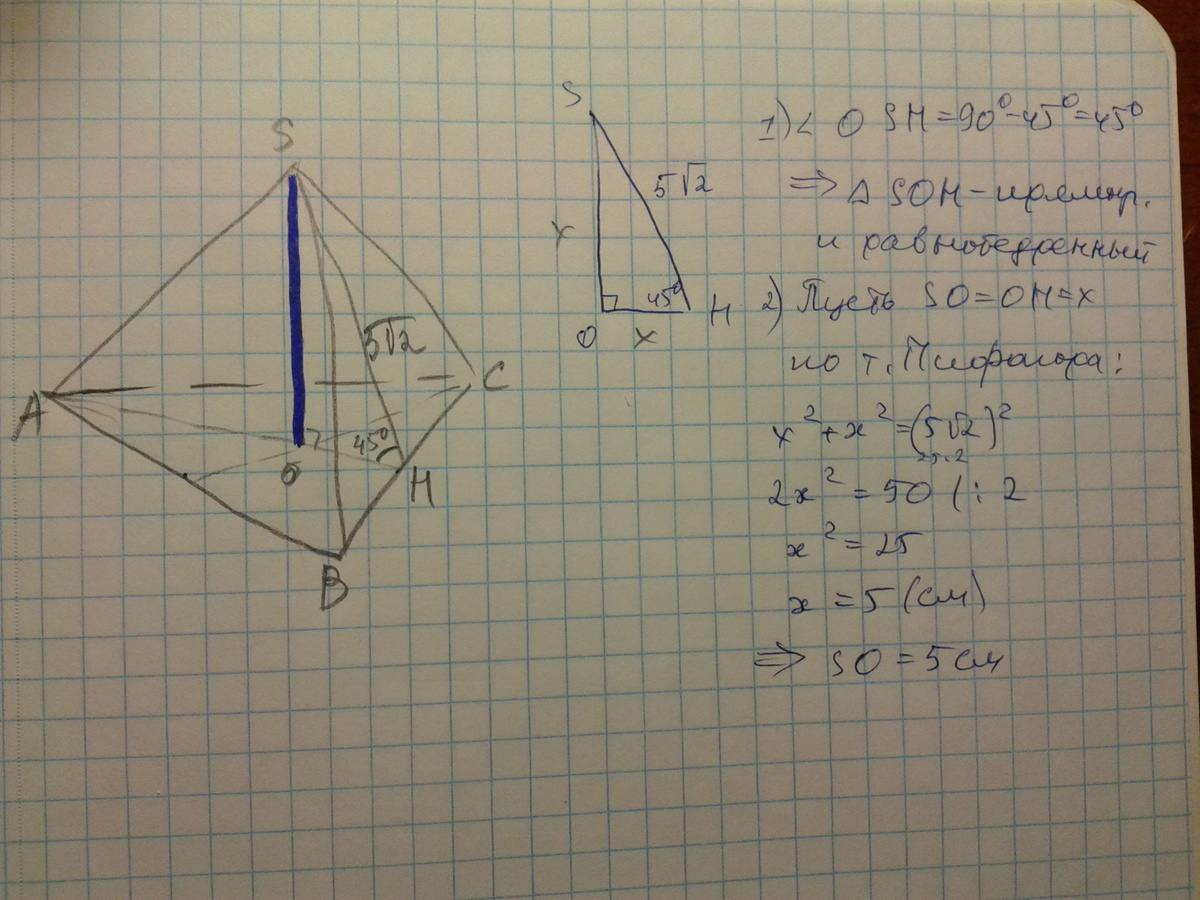 S
5√2
A
C
45°
O
H
B
S
5√2
x
45°
O
x
H
1) ∠ OSH = 90° - 45° = 45°
⇒ Δ SOH - прямоуг.
и равнобедренный
2) Пусть SO = OH = x
по т. Пифагора:
x² + x² = (5√2)²
25·2
2x² = 50 | : 2
x² = 25
x = 5 (см)
⇒ SO = 5 см